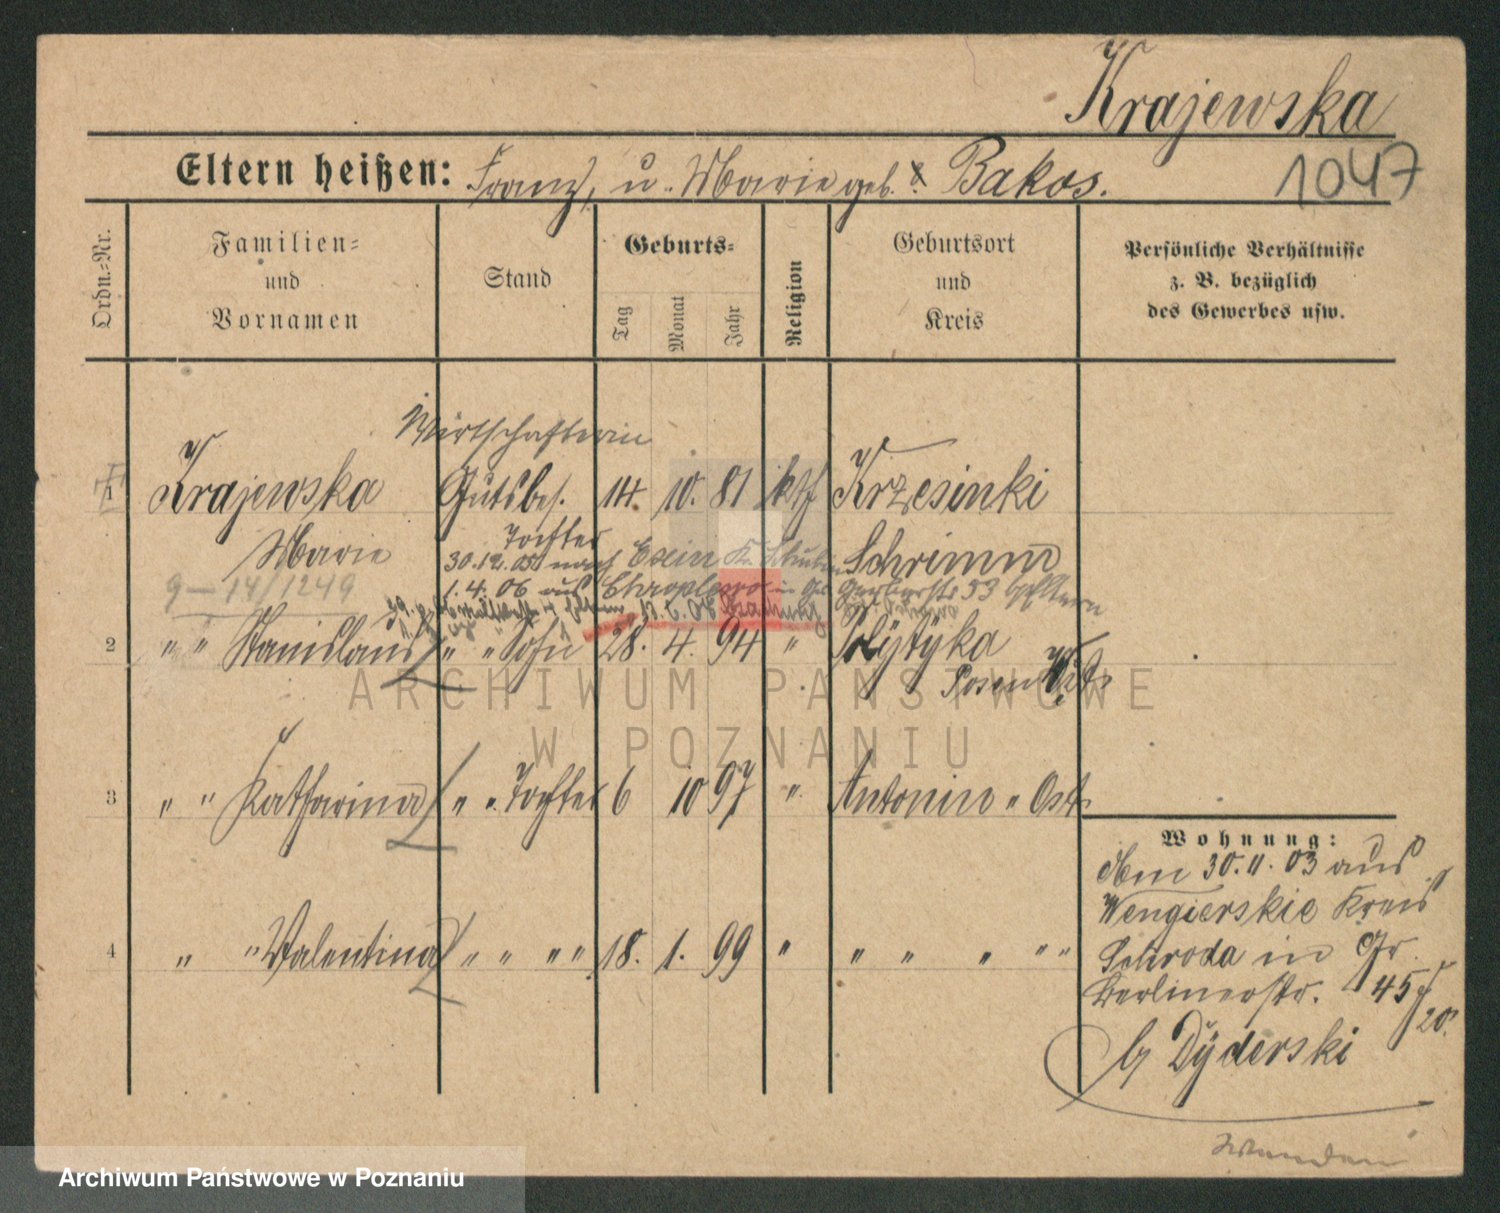 Krajewska
Eltern heißen: Franz, u. Marie geb. Bakos.
1047
Ordn.-Nr.
Familien-
und
Vornamen
Stand
Geburts-
Tag
Monat
Jahr
Religion
Geburtsort
und
Kreis
Persönliche Verhältnisse
z. B. bezüglich
des Gewerbes usw.
Wirtschafterin
1 Krajewska Gutsbes. 14. 10. 81 kth Krzesinki
Marie Tochter Schrimm
30.12.05 nach Exin Kr. Schubin
9-14/1249
1.4.06 aus
2 " " Stanislaus " " Sohn 28. 4. 94 "
Posen
3 " " Katharina " " Tochter 6 10 97 " Antonin " Ost
4 " " Valentina " " " " 18. 1. 99 " " " " " "
Wohnung:
Am 30.11.03 aus
Wengierskie Kreis
Schroda in Gr.
Berlinerstr. 45
20.
b/ Dÿderski
Wenden
ARCHIWUM PAŃSTWOWE
W POZNANIU
Archiwum Państwowe w Poznaniu